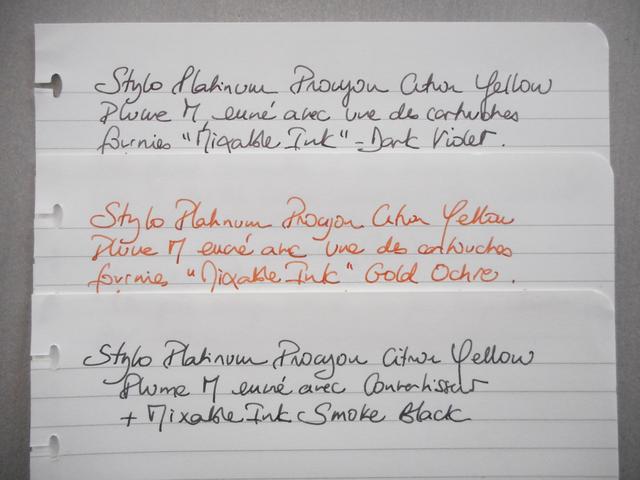 Stylo Platinum Procyon Citron Yellow
Plume M, encré avec une des cartouches
fournies "Mixable Ink" - Dark Violet.
Stylo Platinum Procyon Citron Yellow
Plume M encré avec une des cartouches
fournies "Mixable Ink" Gold Ochre.
Stylo Platinum Procyon Citron Yellow
Plume M encré avec Convertisseur
+ Mixable Ink Smoke Black